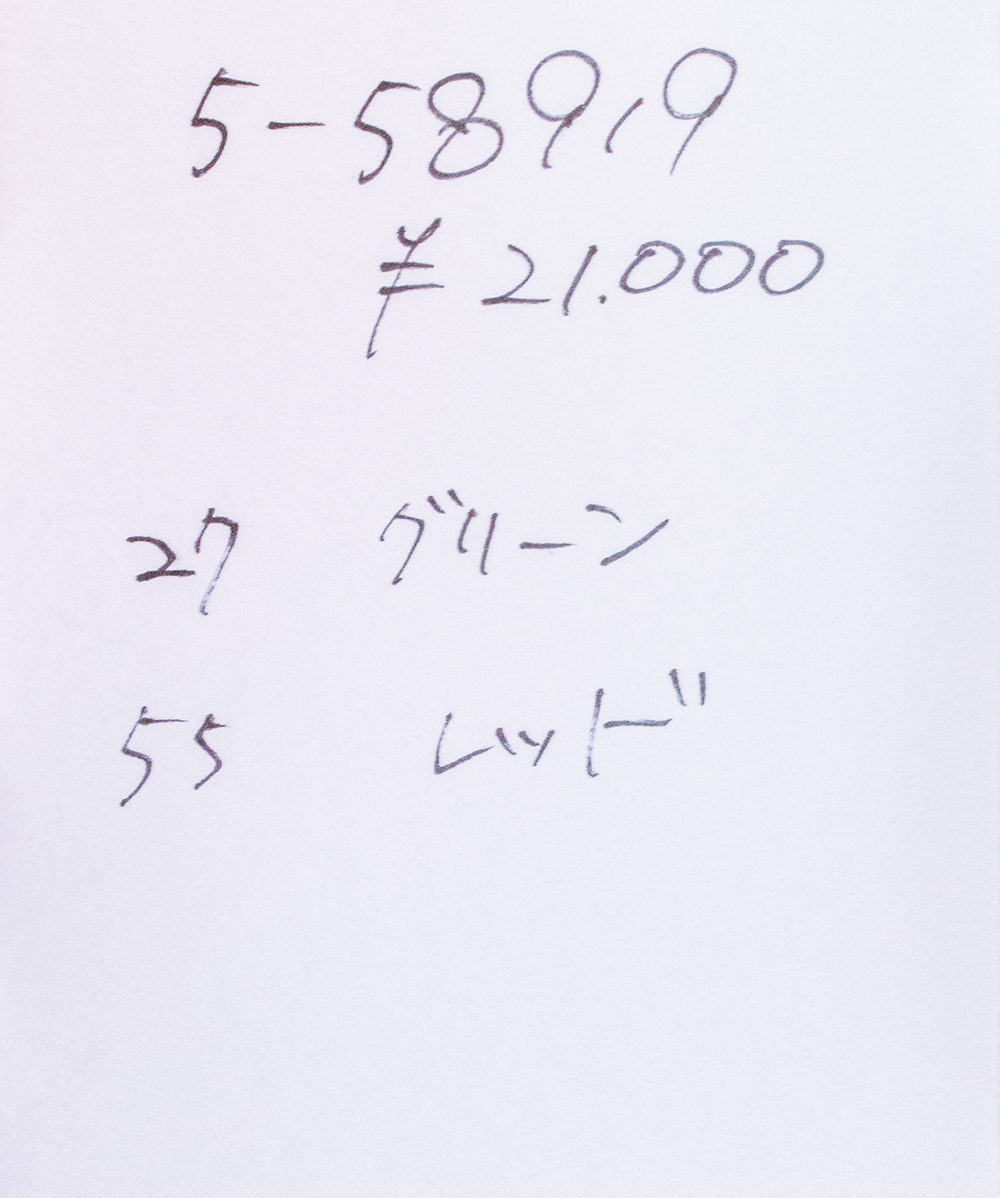 5-58919
¥21.000
27 グリーン
55 レッド